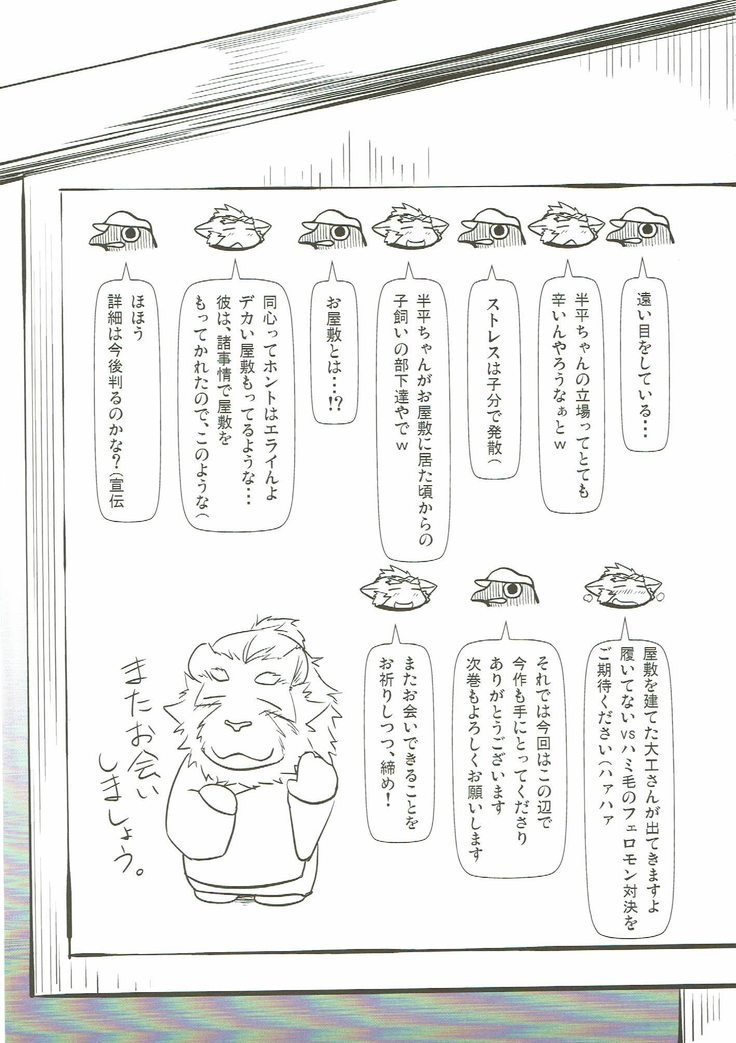 遠い目をしている・・・
半平ちゃんの立場ってとても
辛いんやろうなぁとｗ
ストレスは子分で発散（
半平ちゃんがお屋敷に居た頃からの
子飼いの部下達やでｗ
お屋敷とは・・・!?
同心ってホントはエライんよ
デカい屋敷もってるような・・・
彼は、諸事情で屋敷を
もってかれたので、このような（
ほほう
詳細は今後判るのかな？（宣伝
屋敷を建てた大工さんが出てきますよ
履いてないvsハミ毛のフェロモン対決を
ご期待ください（ハァハァ
それでは今回はこの辺で
今作も手にとってくださり
ありがとうございます
次巻もよろしくお願いします
またお会いできることを
お祈りしつつ、締め！
またお会い
しましょう。